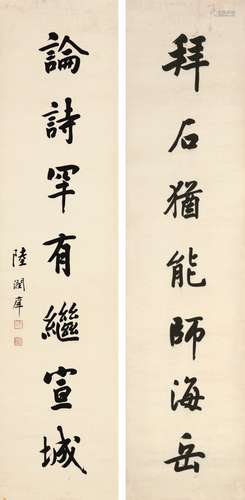 拜石猶能師海岳
論詩罕有繼宣城
陸潤庠